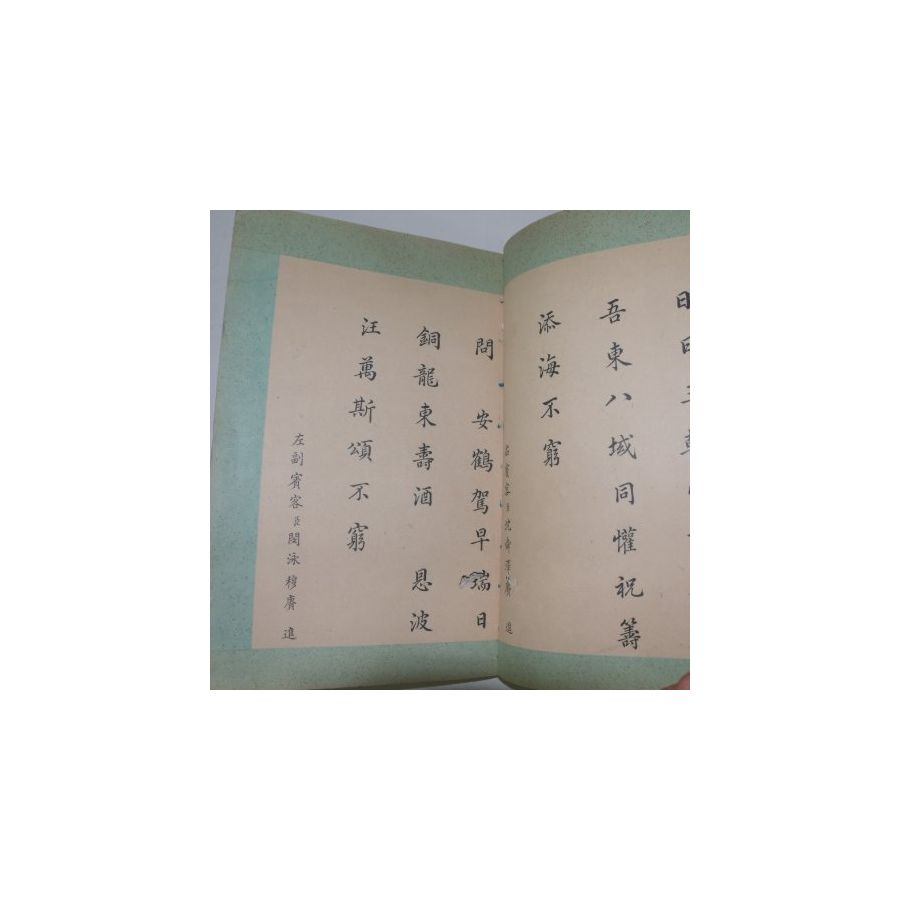 吾東八域同懽祝籌
添海不窮
問 安鶴駕早瑞日
銅龍東壽酒 恩波
汪萬斯頌不窮
左副賓客臣閔泳穆賡 進